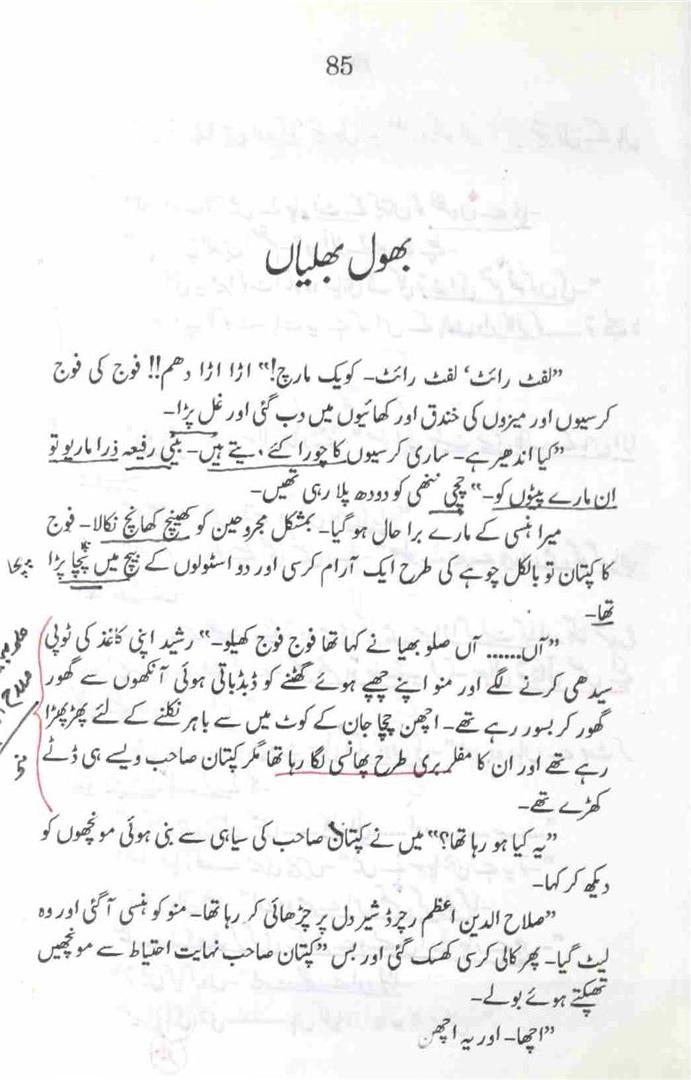 85
بھول بھلیاں
”لفٹ رائٹ‘ لفٹ رائٹ۔ کویک مارچ!“ اڑا اڑا دھم!! فوج کی فوج
کرسیوں اور میزوں کی خندق اور کھائیوں میں دب گئی اور غل پڑا۔
”کیا اندھیر ہے۔ ساری کرسیوں کا چورا کئے دیتے ہیں۔ بیٹی رفیعہ ذرا ماریو تو
ان مارے پیٹوں کو۔“ چچی ننھی کو دودھ پلا رہی تھیں۔
میرا ہنسی کے مارے برا حال ہو گیا۔ بمشکل مجروحین کو کھینچ کھانچ نکالا۔ فوج
کا کپتان تو بالکل چوہے کی طرح ایک آرام کرسی اور دو اسٹولوں کے بیچ میں پچا پڑا
تھا۔
”آں...... آں صلو بھیا نے کہا تھا فوج فوج کھیلو۔“ رشید اپنی کاغذ کی ٹوپی
سیدھی کرنے لگے اور منو اپنے چھپے ہوئے گھٹنے کو ڈبڈباتی ہوئی آنکھوں سے گھور
گھور کر بسور رہے تھے۔ اچھن چچا جان کے کوٹ میں سے باہر نکلنے کے لئے پھڑپھڑا
رہے تھے اور ان کا مفلر بری طرح پھانسی لگا رہا تھا مگر کپتان صاحب ویسے ہی ڈٹے
کھڑے تھے۔
”یہ کیا ہو رہا تھا؟“ میں نے کپتان صاحب کی سیاہی سے بنی ہوئی مونچھوں کو
دیکھ کر کہا۔
”صلاح الدین اعظم رچرڈ شیر دل پر چڑھائی کر رہا تھا۔ منو کو ہنسی آگئی اور وہ
لیٹ گیا۔ پھر کالی کرسی کھسک گئی اور بس“ کپتان صاحب نہایت احتیاط سے مونچھیں
تھپکتے ہوئے بولے۔
”اچھا۔ اور یہ اچھن